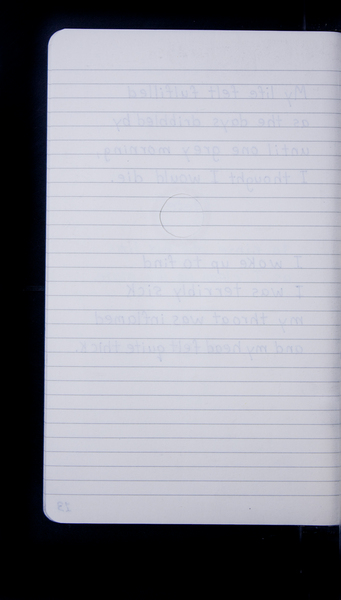 My life felt fulfilled
as the days dribbled by
until one grey morning,
I thought I would die.
I woke up to find
I was terribly sick
my throat was inflamed
and my head felt quite thick.